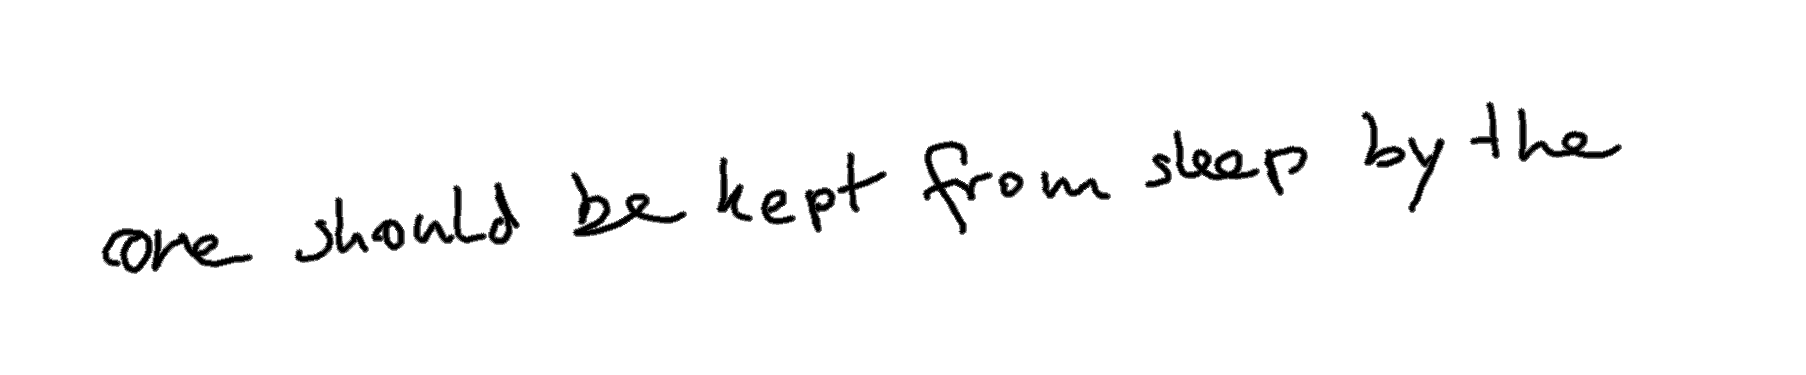 one should be kept from sleep by the